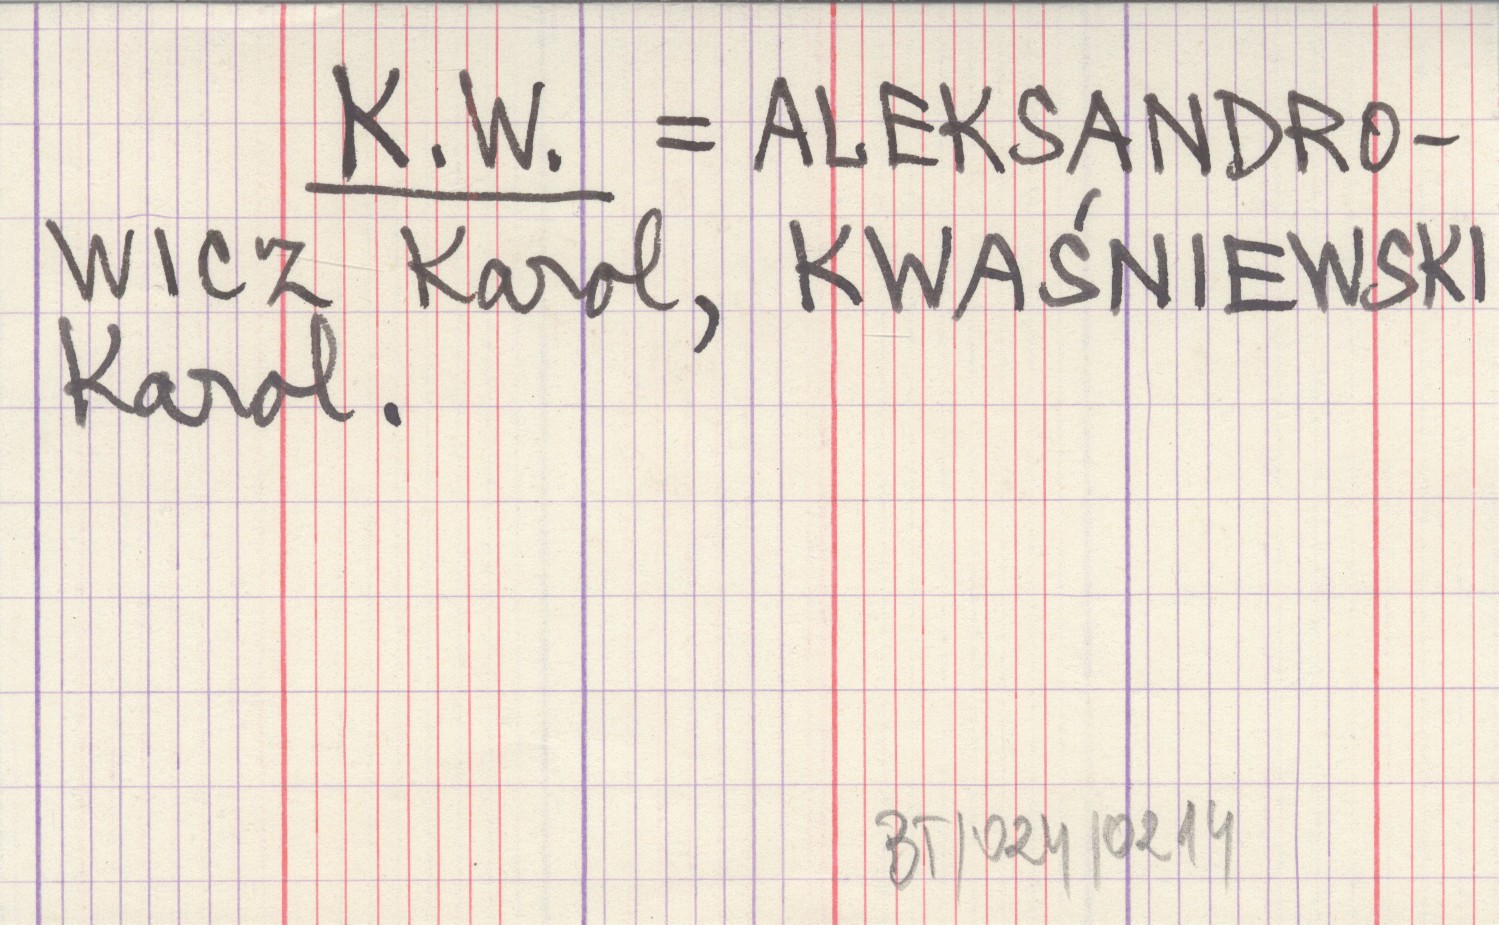 K.W. = ALEKSANDRO-
WICZ Karol, KWAŚNIEWSKI
Karol.
BT/024/0214